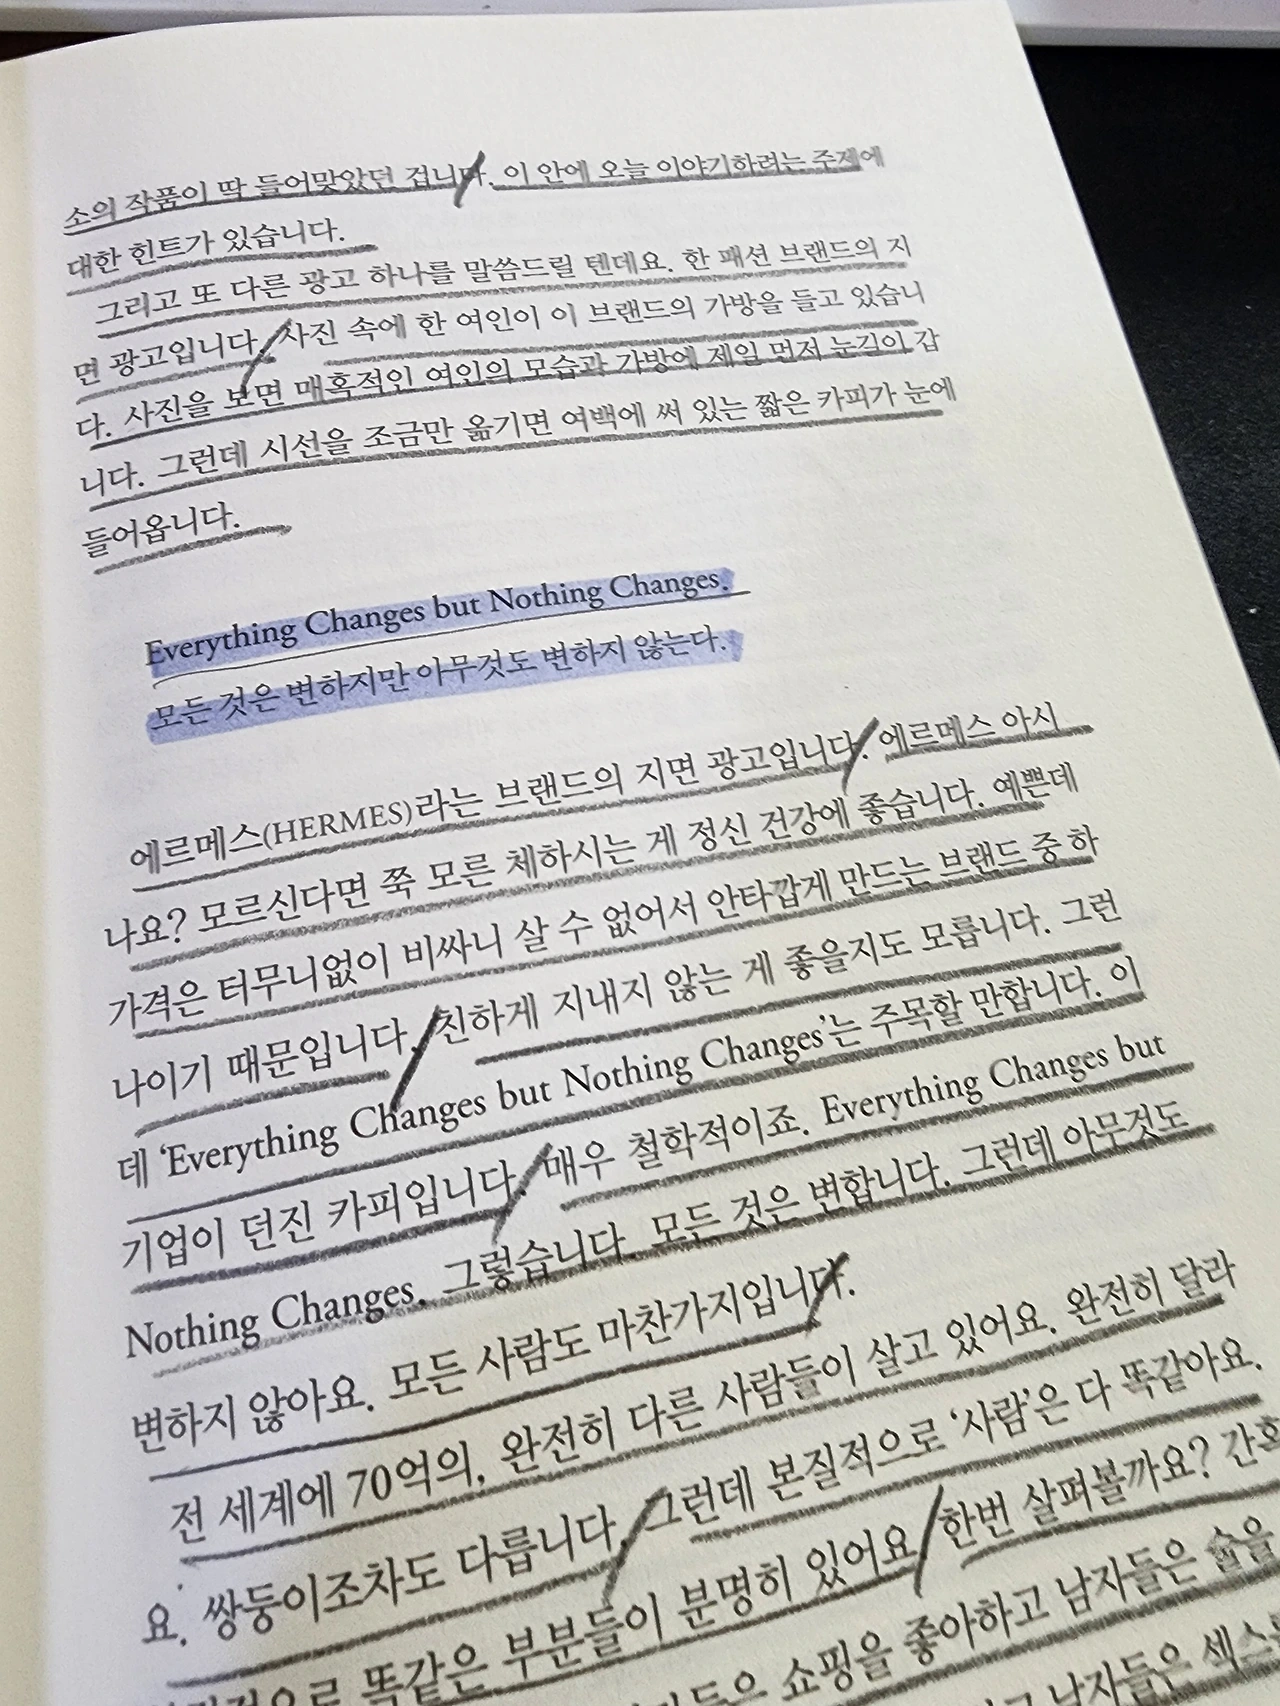 소의 작품이 딱 들어맞았던 겁니다. 이 안에 오늘 이야기하려는 주제에
대한 힌트가 있습니다.
그리고 또 다른 광고 하나를 말씀드릴 텐데요. 한 패션 브랜드의 지
면 광고입니다. 사진 속에 한 여인이 이 브랜드의 가방을 들고 있습니
다. 사진을 보면 매혹적인 여인의 모습과 가방에 제일 먼저 눈길이 갑
니다. 그런데 시선을 조금만 옮기면 여백에 써 있는 짧은 카피가 눈에
들어옵니다.
Everything Changes but Nothing Changes.
모든 것은 변하지만 아무것도 변하지 않는다.
에르메스(HERMES)라는 브랜드의 지면 광고입니다. 에르메스 아시
나요? 모르신다면 쭉 모른 체하시는 게 정신 건강에 좋습니다. 예쁜데
가격은 터무니없이 비싸니 살 수 없어서 안타깝게 만드는 브랜드 중 하
나이기 때문입니다. 친하게 지내지 않는 게 좋을지도 모릅니다. 그런
데 ‘Everything Changes but Nothing Changes’는 주목할 만합니다. 이
기업이 던진 카피입니다. 매우 철학적이죠. Everything Changes but
Nothing Changes. 그렇습니다. 모든 것은 변합니다. 그런데 아무것도
변하지 않아요. 모든 사람도 마찬가지입니다.
전 세계에 70억의, 완전히 다른 사람들이 살고 있어요. 완전히 달라
요. 쌍둥이조차도 다릅니다. 그런데 본질적으로 ‘사람’은 다 똑같아요.
똑같은 부분들이 분명히 있어요. 한번 살펴볼까요?
쇼핑을 좋아하고 남자들은 술을
남자들은